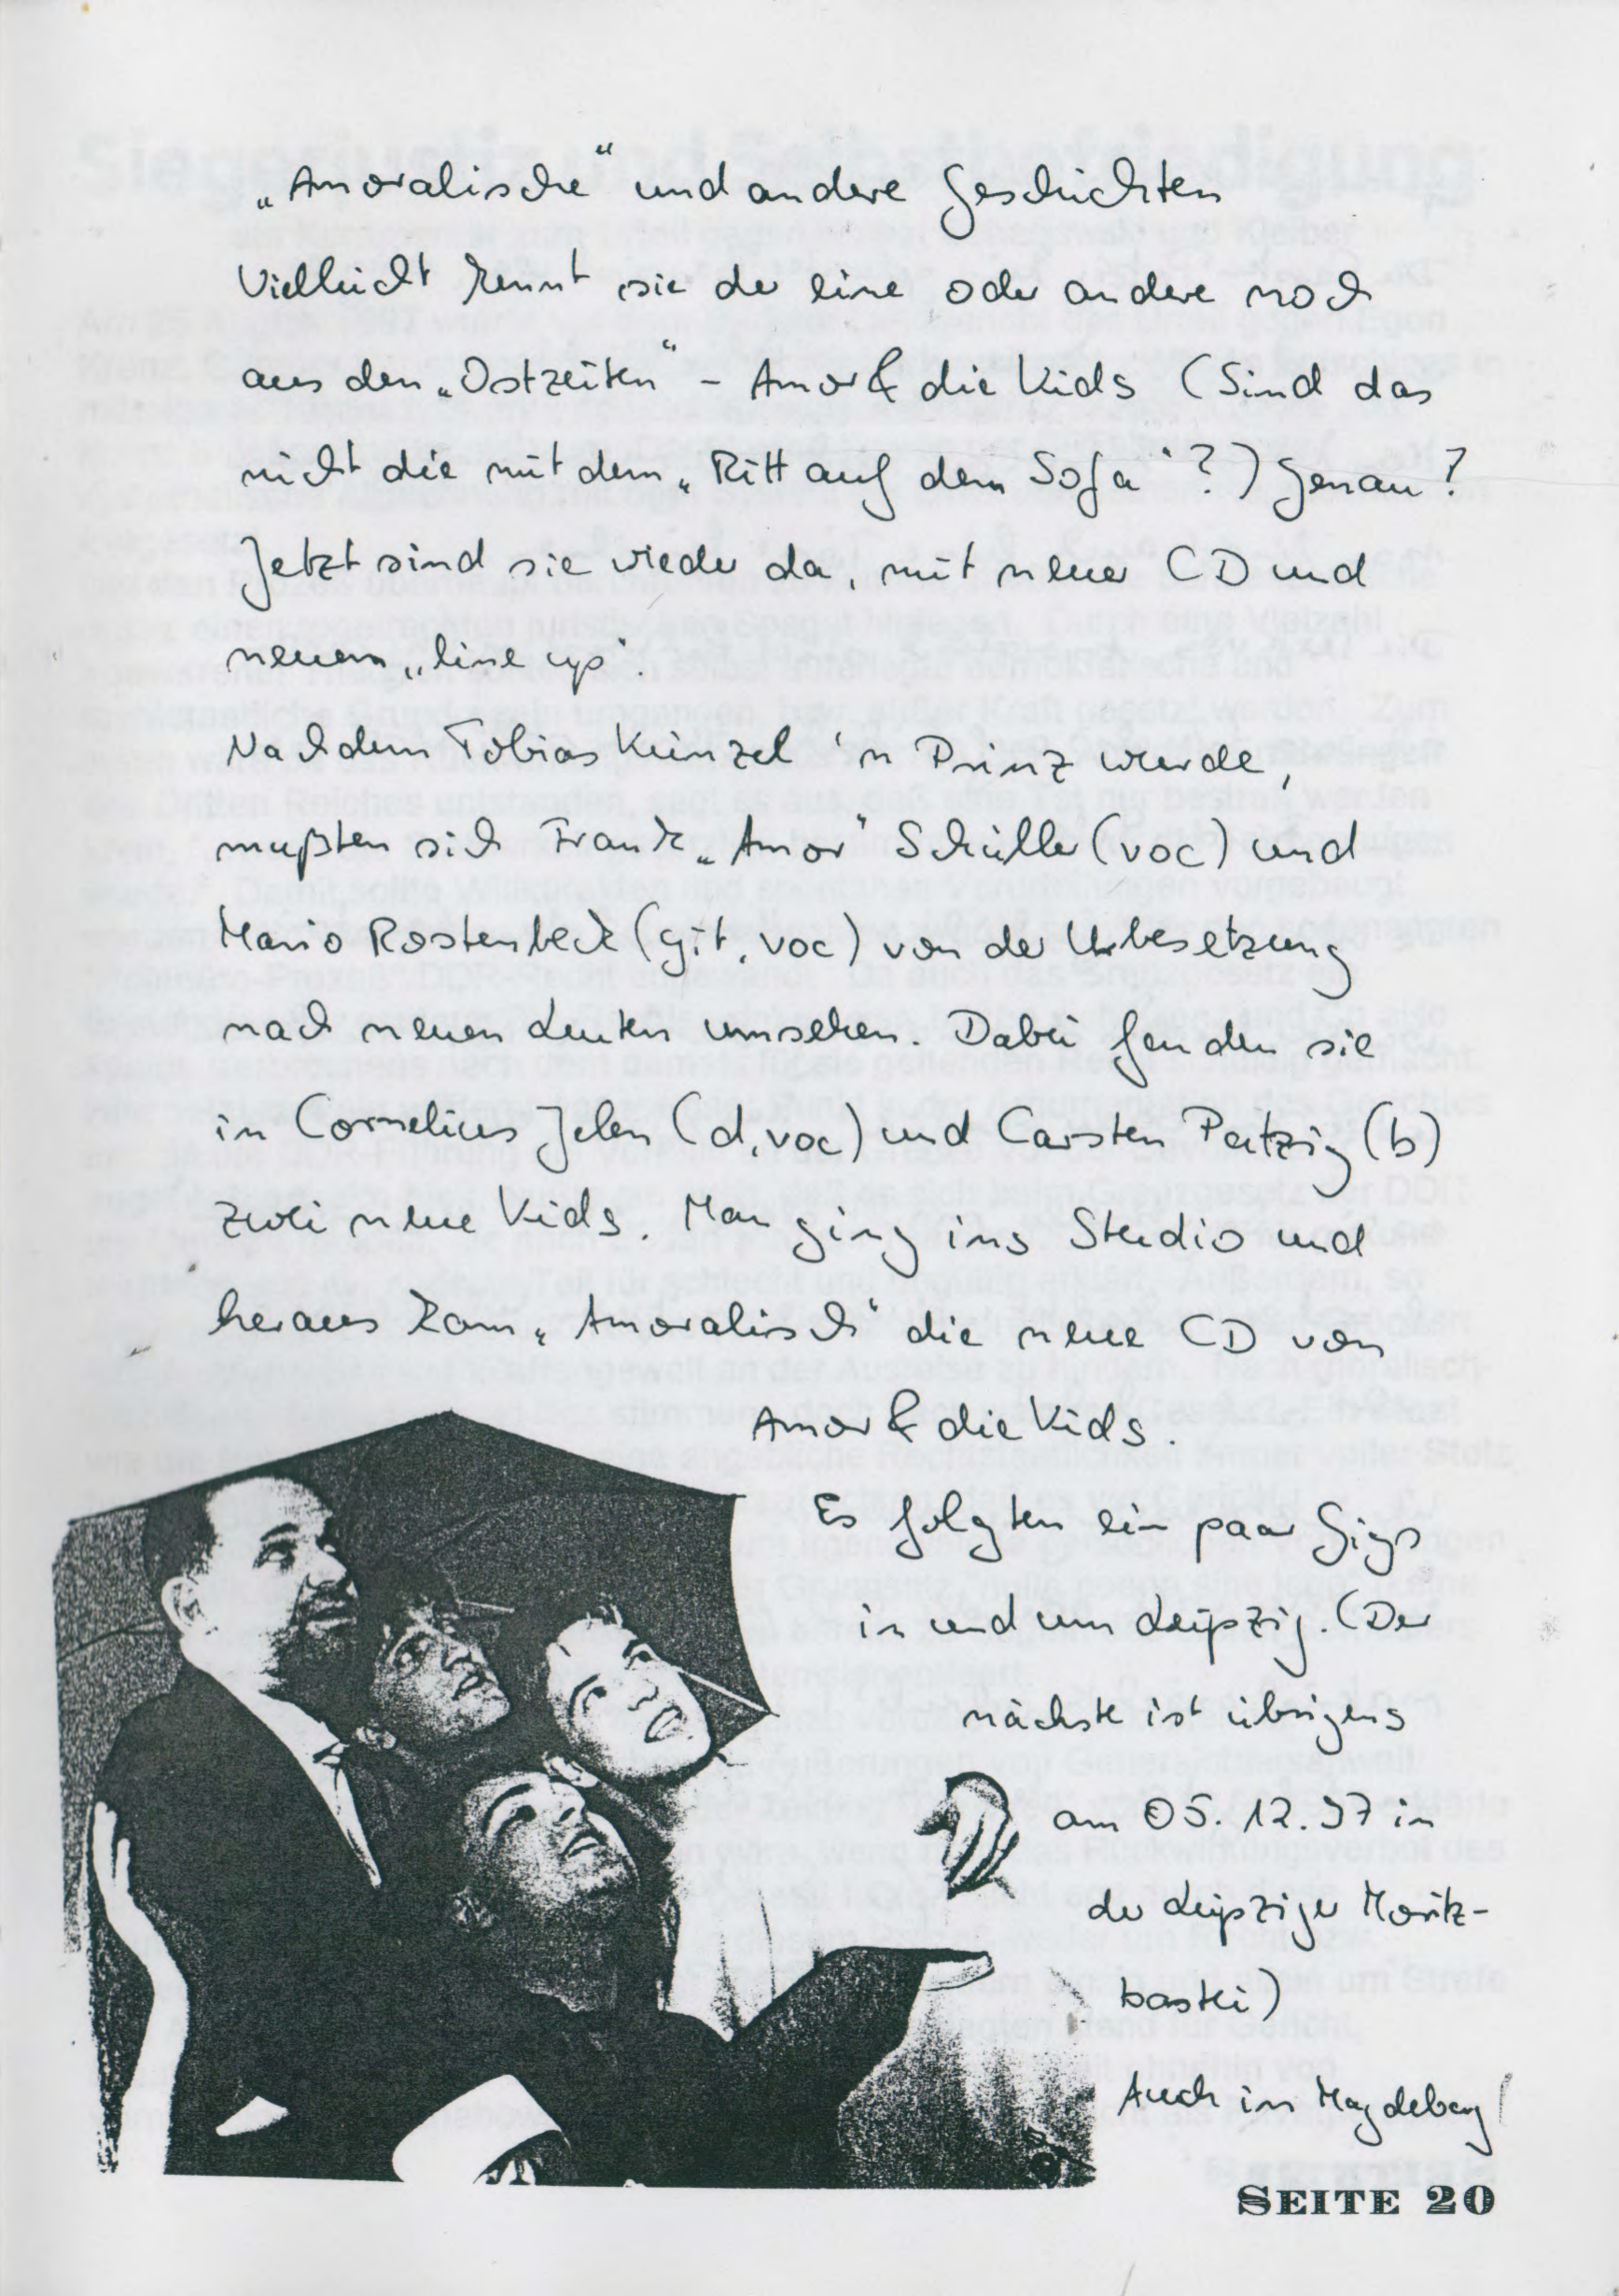 „Amoralische“ und andere Geschichten
Vielleicht kennt sie der eine oder andere noch
aus den „Ostzeiten“ – Amor & die Kids (Sind das
nicht die mit dem „Ritt auf dem Sofa“?) Genau!
Jetzt sind sie wieder da, mit neuer CD und
neuem „line up“.
Nachdem Tobias Künzel 'n Prinz wurde,
mußten sich Frank „Amor“ Schüller (voc) und
Mario Rostenbeck (git, voc) von der Urbesetzung
nach neuen Leuten umsehen. Dabei fanden sie
in Cornelius Jelen (d, voc) und Carsten Patzig (b)
zwei neue Kids. Man ging ins Studio und
heraus kam „Amoralisch“ die neue CD von
Amor & die Kids.
Es folgten ein paar Gigs
in und um Leipzig. (Der
nächste ist übrigens
am 05.12.97 in
der Leipziger Moritz-
bastei)
Auch in Magdeburg!
SEITE 20